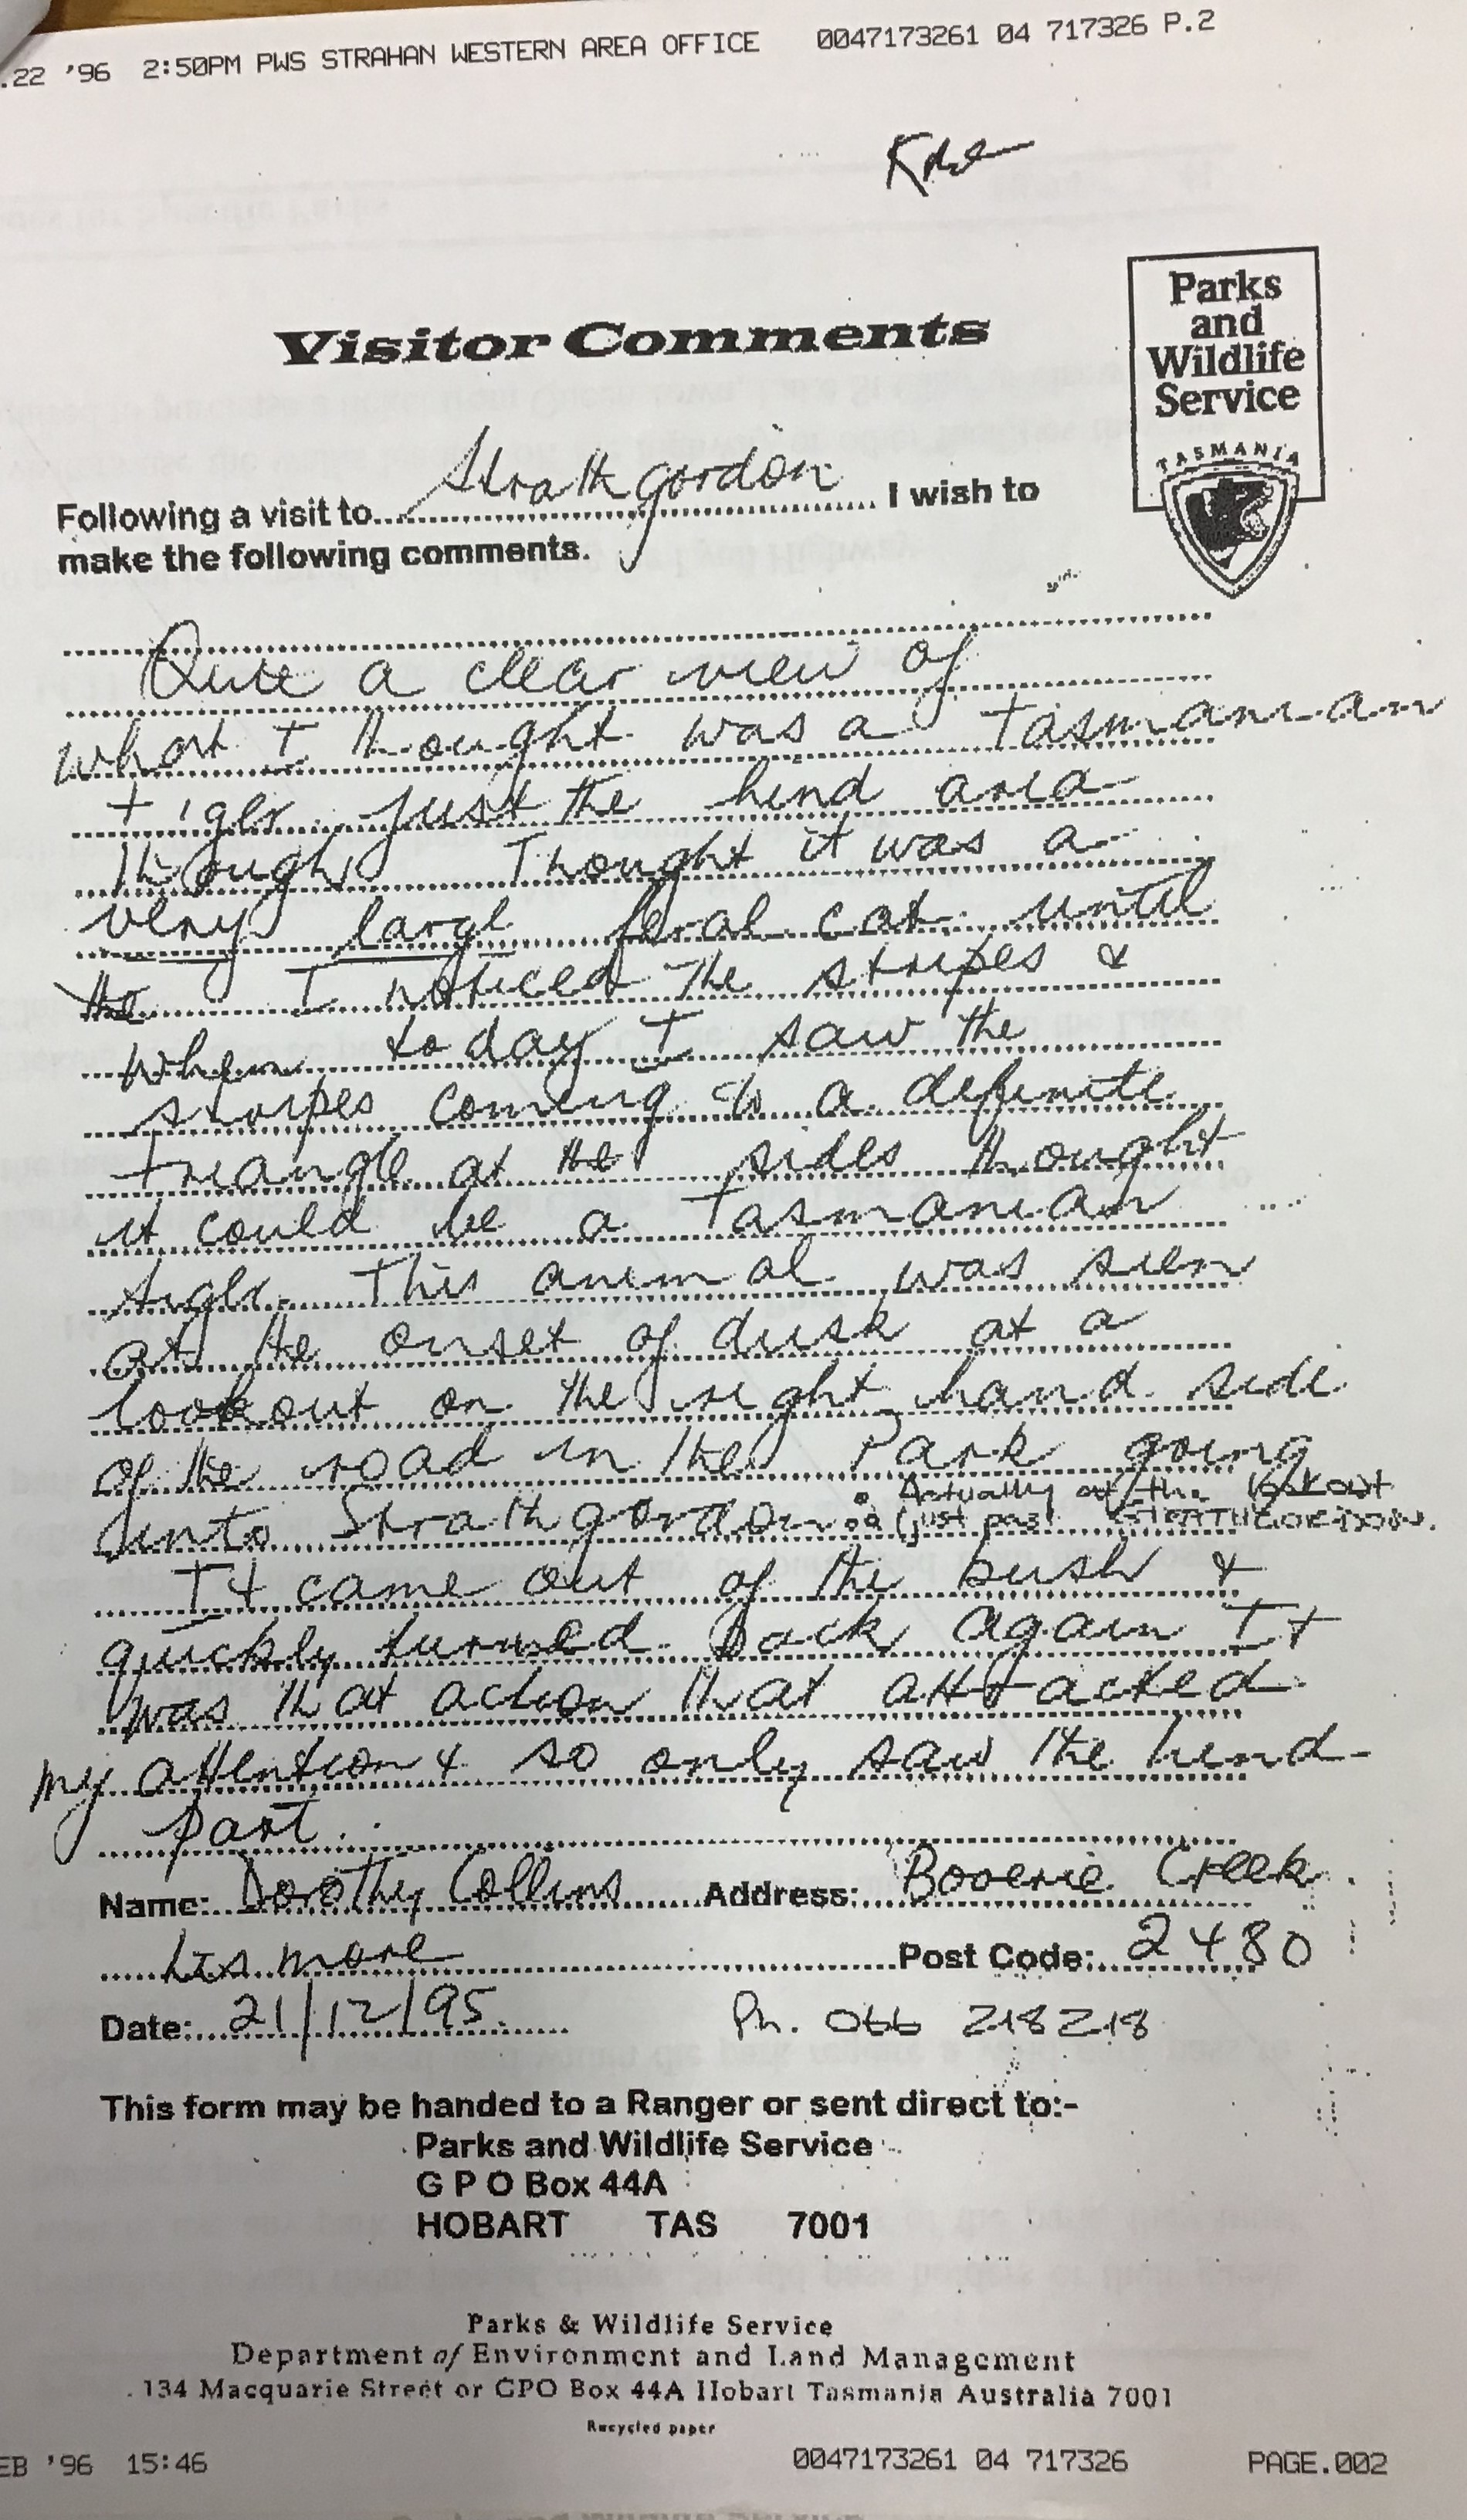 .22 '96 2:50PM PWS STRAHAN WESTERN AREA OFFICE 0047173261 04 717326 P.2
Parks
and
Wildlife
Service
TASMANIA
Visitor Comments
Following a visit to Strathgordon I wish to
make the following comments.
Quite a clear view of
what I thought was a Tasmanian
tiger just the hind area
though Thought it was a
very large feral cat until
the I noticed the stripes &
when today I saw the
stripes coming to a definite
triangle at the sides thought
it could be a Tasmanian
tiger. This animal was seen
at the onset of dusk at a
lookout on the right hand side
of the road in the Park going
into Strathgordon. Actually at the lookout
(just past STRATHGORDON.
It came out of the bush &
quickly turned back again It
was that action that attracted
my attention & so only saw the hind-
part.
Name: Dorothy Collins Address: Booerie Creek.
Lismore Post Code: 2480
Date: 21/12/95 Ph. 066 218218
This form may be handed to a Ranger or sent direct to:-
Parks and Wildlife Service
G P O Box 44A
HOBART TAS 7001
Parks & Wildlife Service
Department of Environment and Land Management
134 Macquarie Street or GPO Box 44A Hobart Tasmania Australia 7001
Recycled paper
EB '96 15:46 0047173261 04 717326 PAGE.002